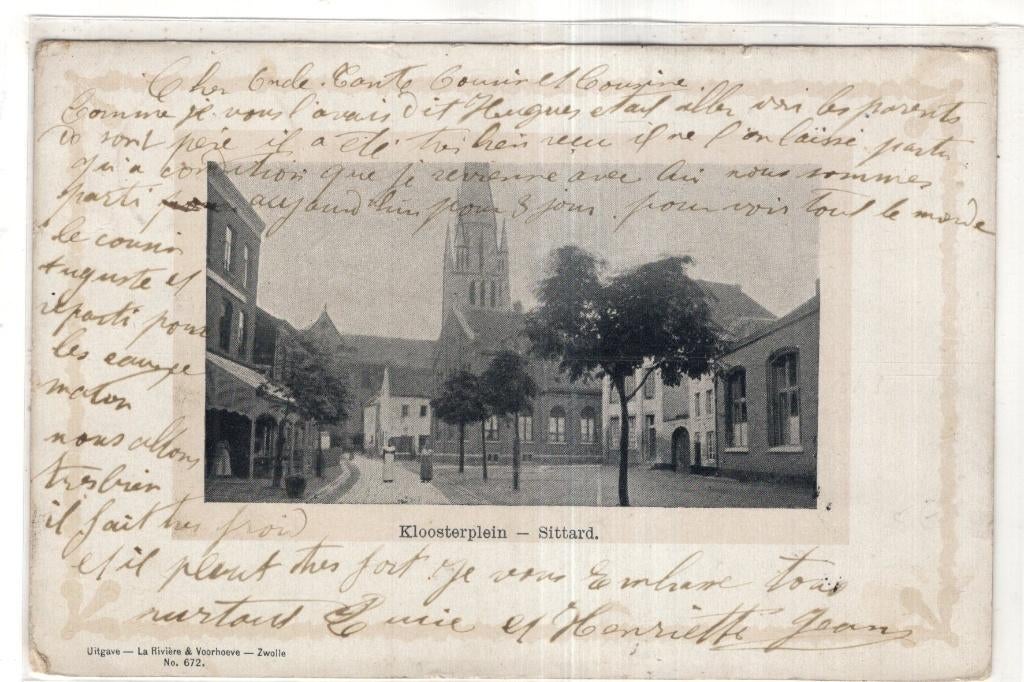 Cher Oncle Tante Cousin et Cousine
Comme je vous l'avais dit Hugues etait aller voir les parents
sont père il a été tres bien recu il ne l'on laissé partir
qu'a condition que je revienne avec lui nous sommes
parti pour aujourd'hui pour 3 jour. pour voir tout le monde
le cousin
Auguste et
reparti pour
les
nous allons
tres bien
il fait tres froid
et il pleut tres fort Je vous Embrasse tous
surtout Lucie et Henriette Jean
Kloosterplein — Sittard.
Uitgave — La Rivière & Voorhoeve — Zwolle
No. 672.